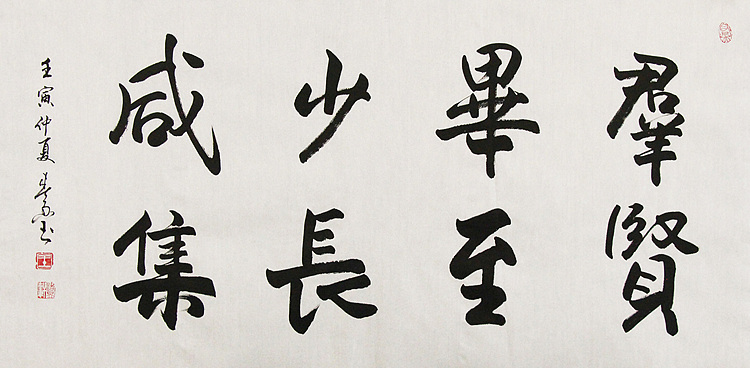 羣賢
畢至
少長
咸集
壬寅仲夏